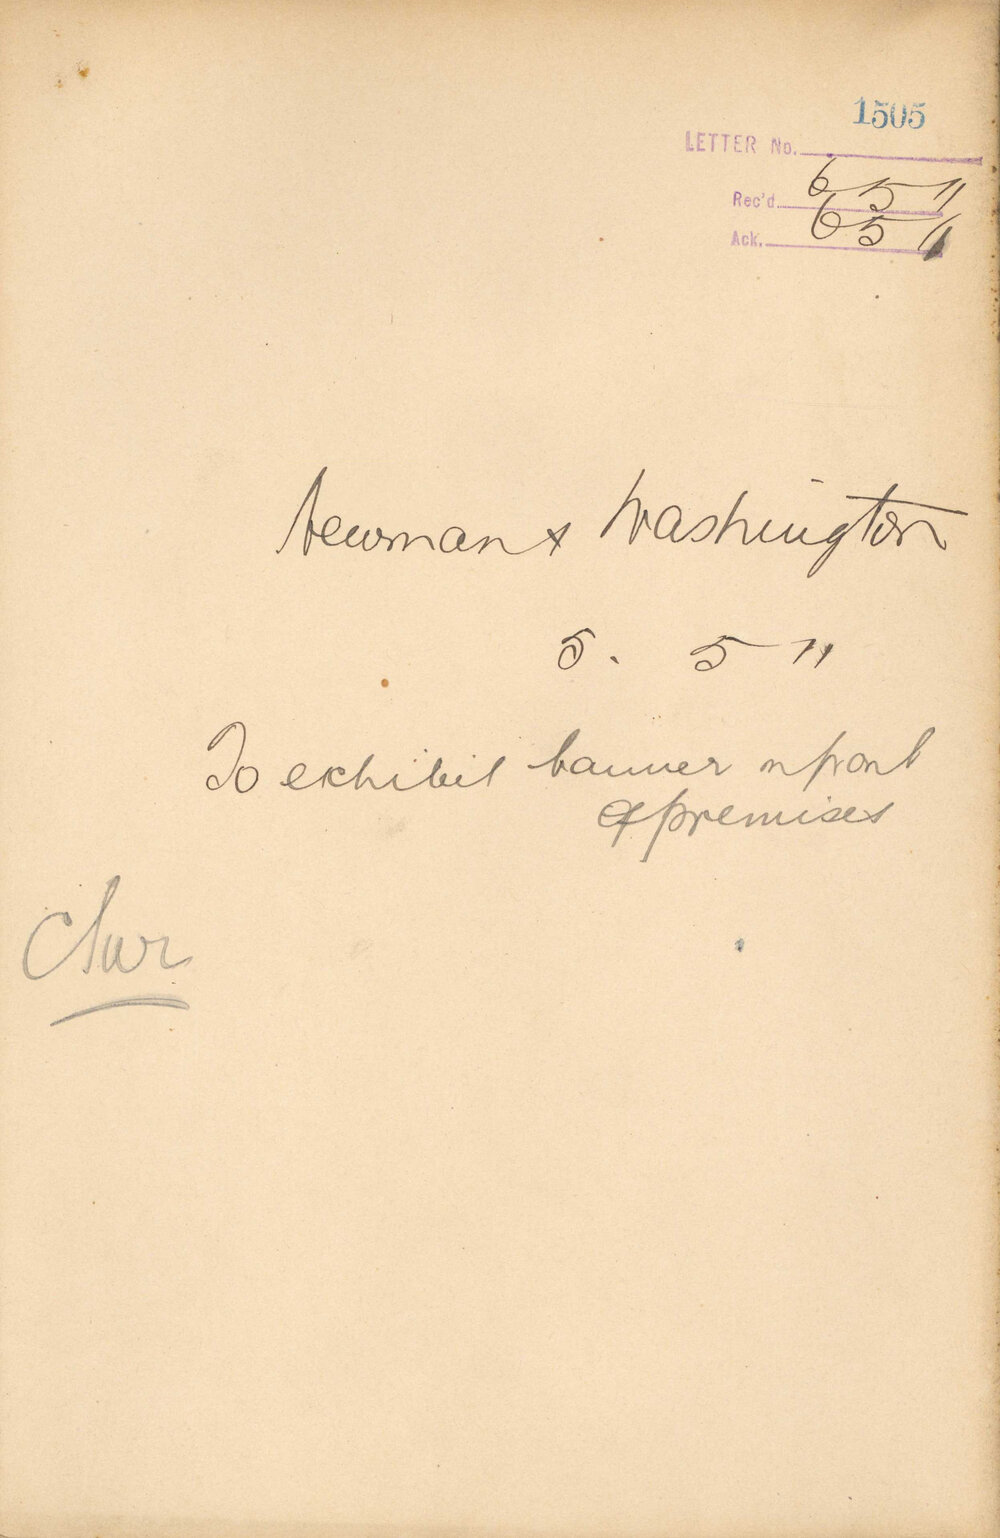 1505
LETTER No.
Rec'd 6 5 11
Ack. 6 5 11
Newman & Washington
5. 5 11
To exhibit banner in front
of premises